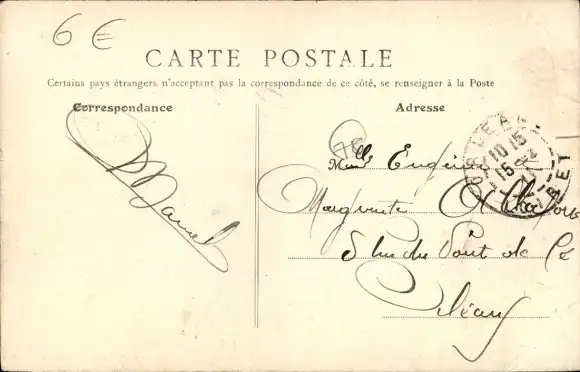 6 €
CARTE POSTALE
Certains pays étrangers n'acceptant pas la correspondance de ce côté, se renseigner à la Poste
Correspondance
Adresse
Marcel
Melle Eugénie
Marguerite
5 Rue du Pont de Cé
Orléans
ORLEANS
10 15
15
LOIRET